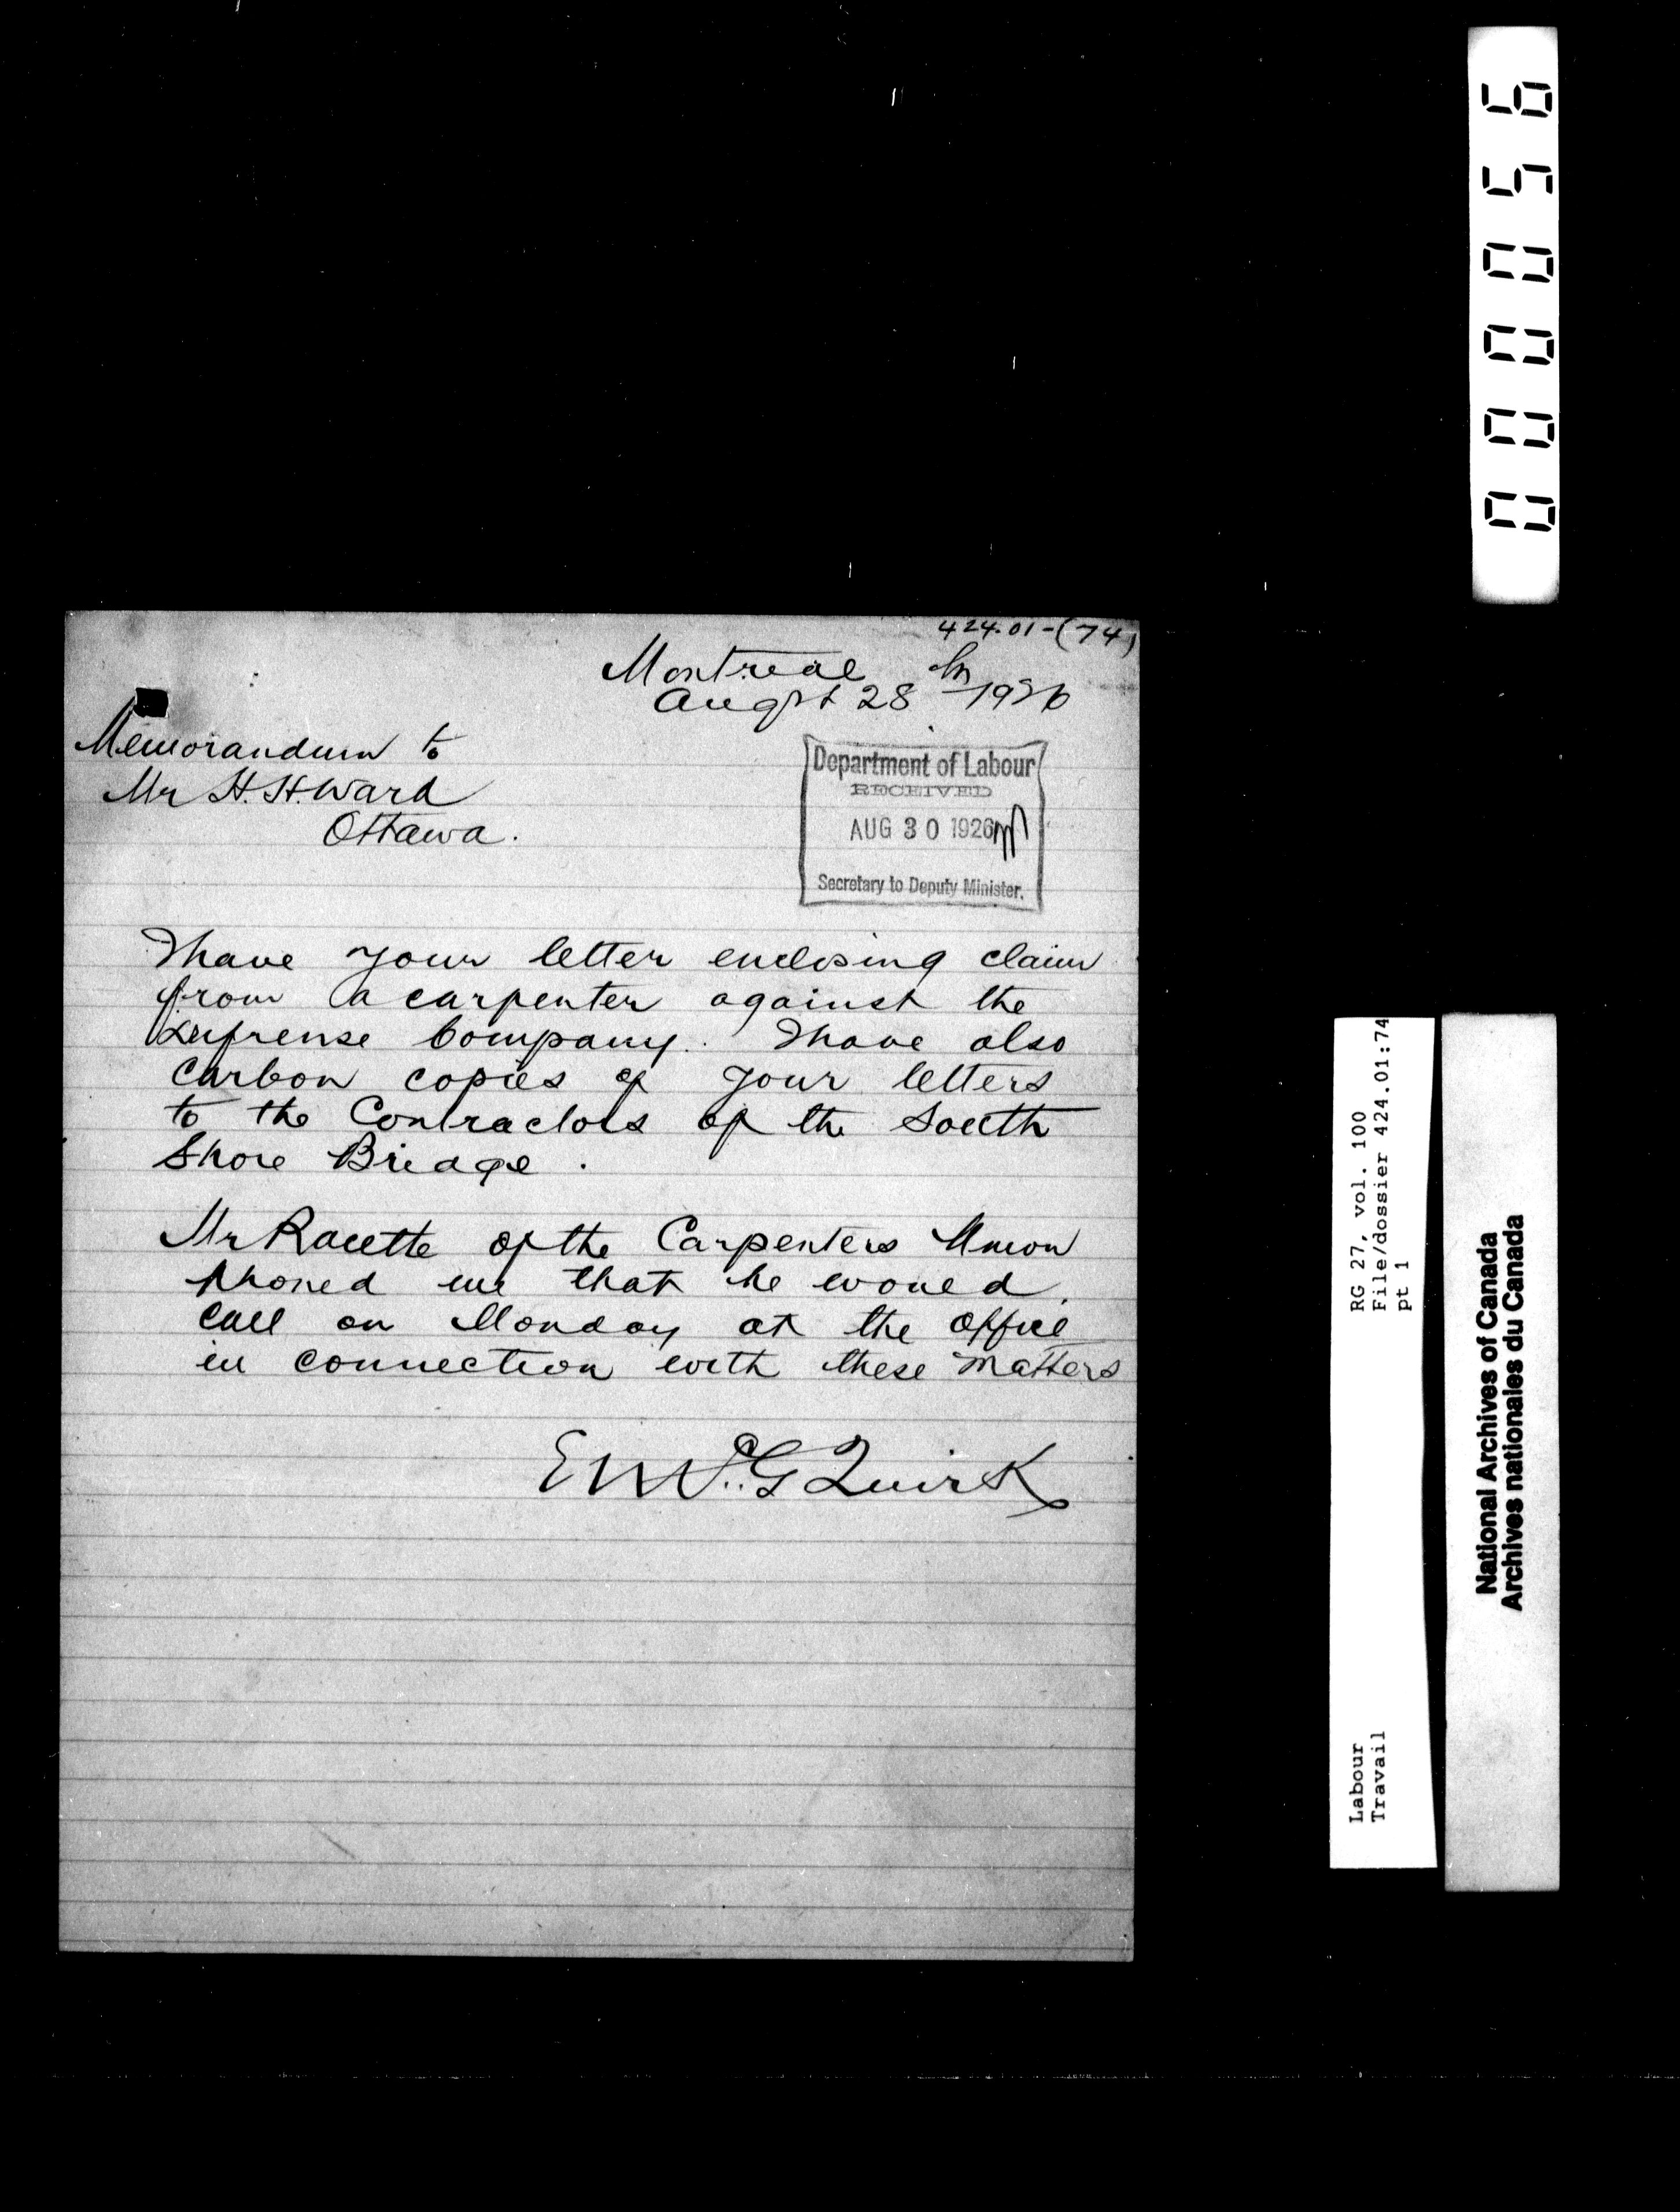 424.01-(74)
Montreal
Augst 28th 1926
Memorandum to
Mr H. H. Ward
Ottawa.
Department of Labour
RECEIVED
AUG 30 1926
Secretary to Deputy Minister.
I have your letter enclosing claim
from a carpenter against the
Company. I have also
carbon copies of your letters
to the Contractors of the South
Shore Bridge.
Mr Racette of the Carpenters Union
phoned me that he would
call on Monday at the office
in connection with these matters
E McG Quirk
000056
RG 27, vol. 100
File/dossier 424.01:74
pt 1
Labour
Travail
National Archives of Canada
Archives nationales du Canada